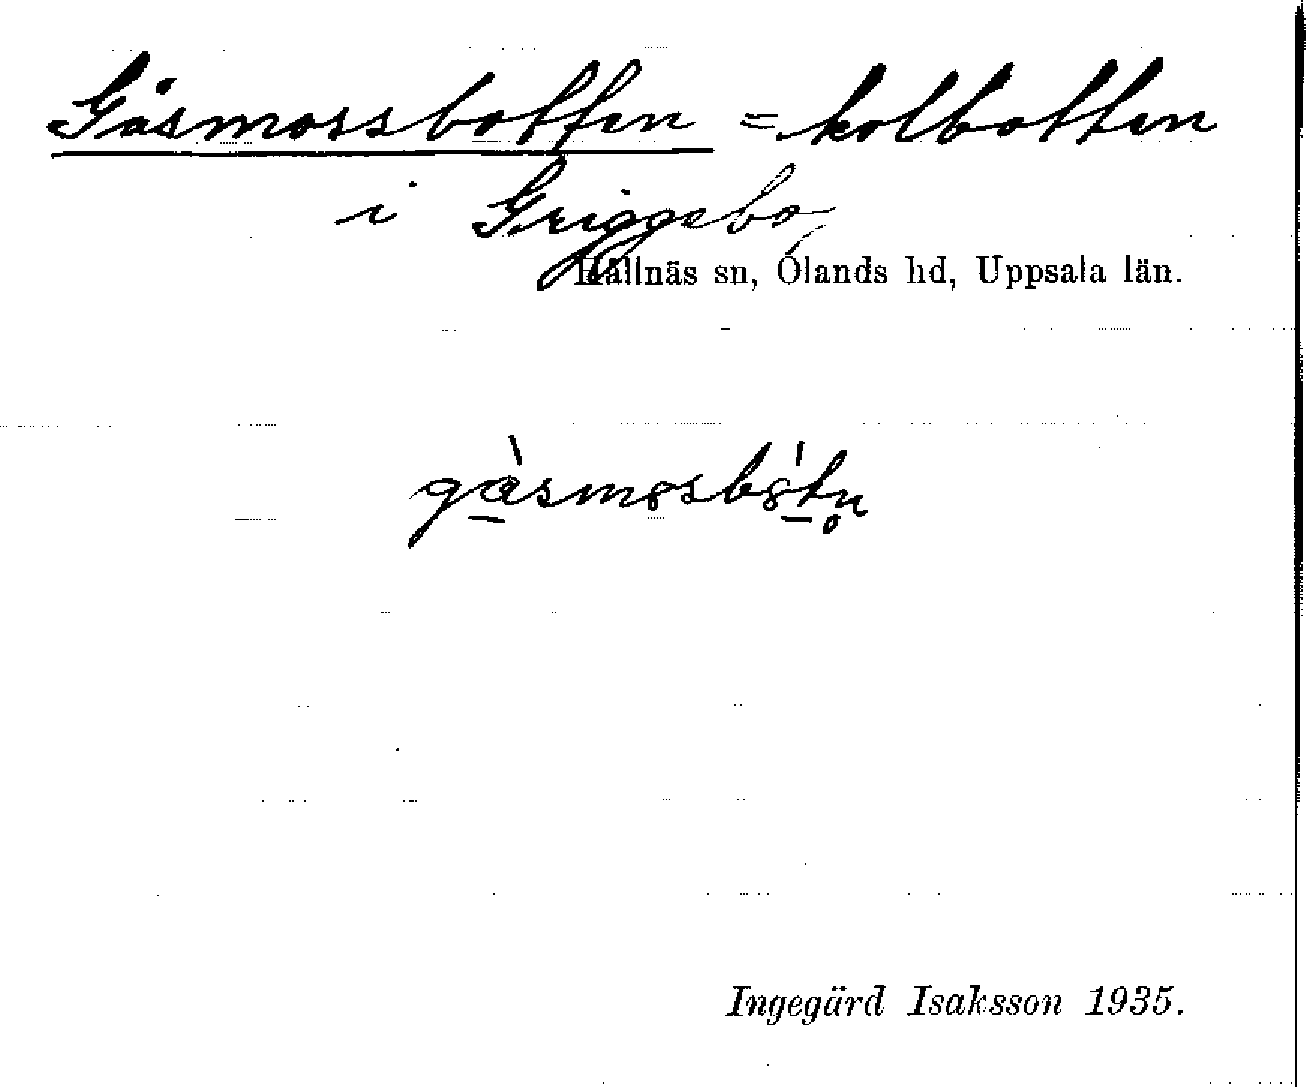 Gåsmossbotten = kolbotten
i Griggebo
Hållnäs sn, Olands hd, Uppsala län.
gåsmosbòtn̥
Ingegärd Isaksson 1935.